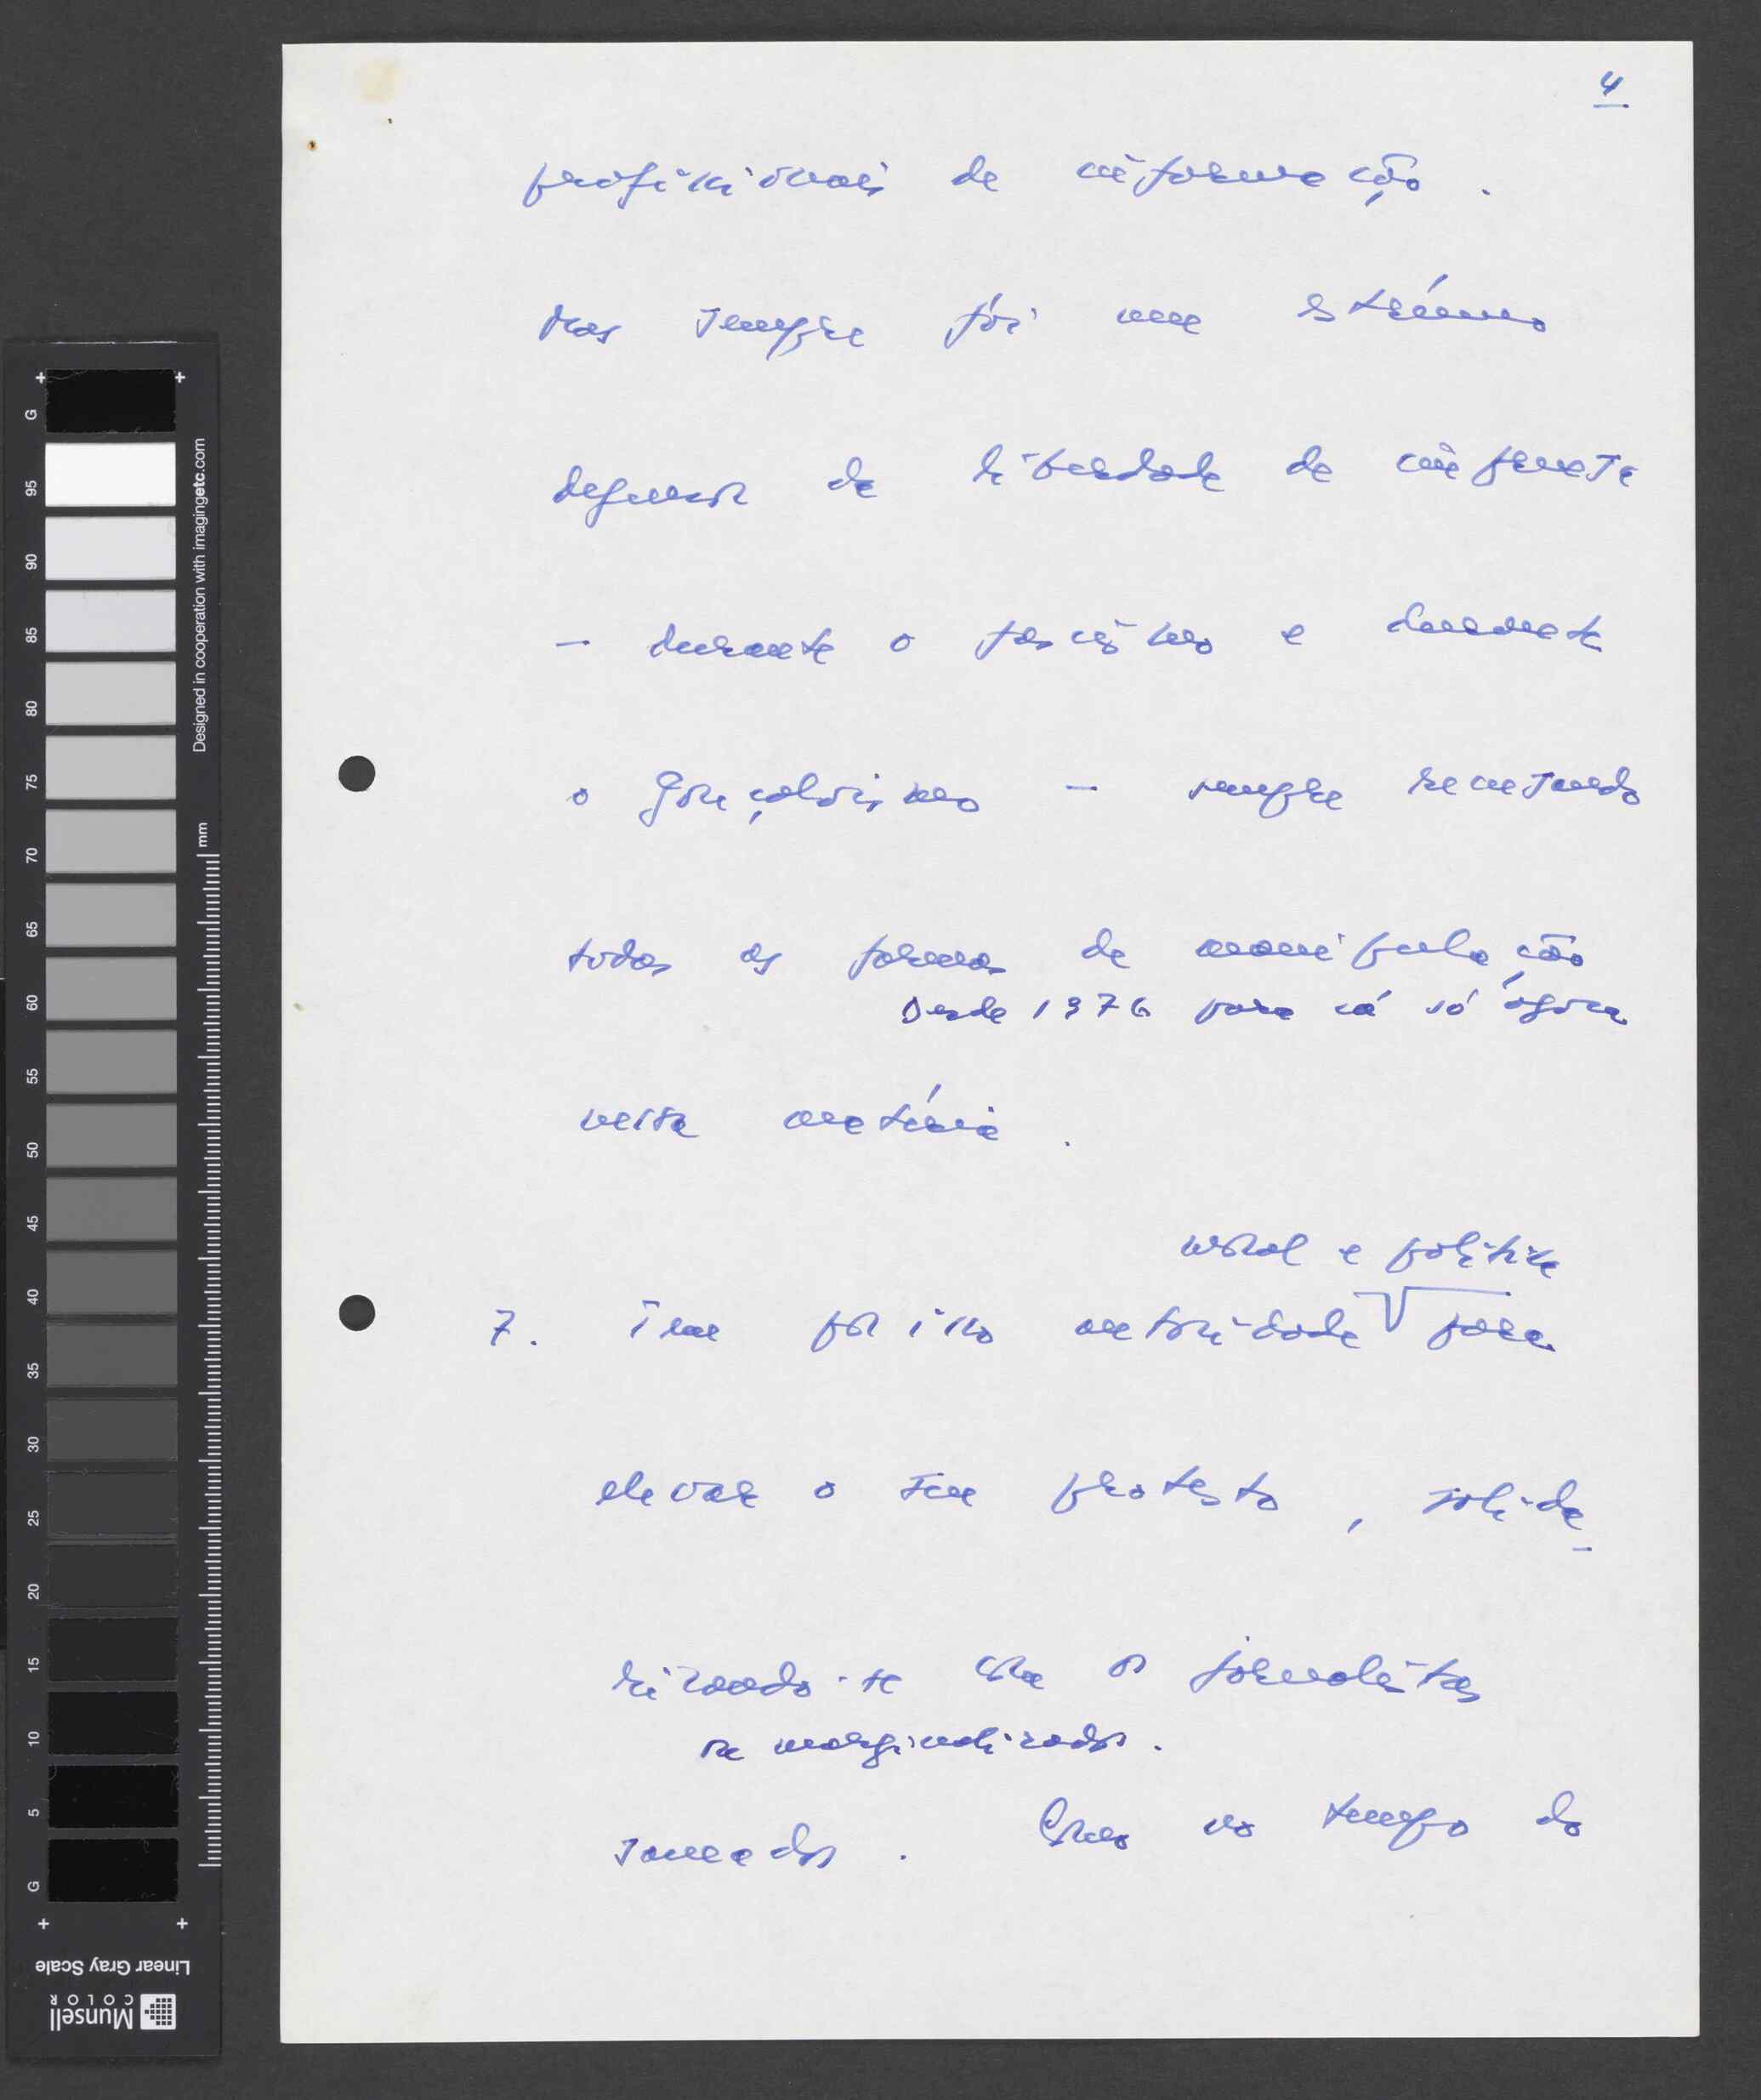 4
profissionais de informação.
Mas sempre foi um extrénuo
defensor da liberdade de imprensa
— durante o fascismo e durante
o gonçalvismo — sempre recusando
todas as formas de manipulação
Desde 1976 para cá só agora
nessa matéria.
moral e política
7. Tem por isso autoridade para
elevar o seu protesto, solida-
rizando-se com os jornalistas
marginalizados.
saneados. Como no tempo do
G 95 90 85 80 75 70 65 60 55 50 45 40 35 30 25 20 15 10 5 G
Designed in cooperation with imagingetc.com
mm
Linear Gray Scale
Munsell
COLOR